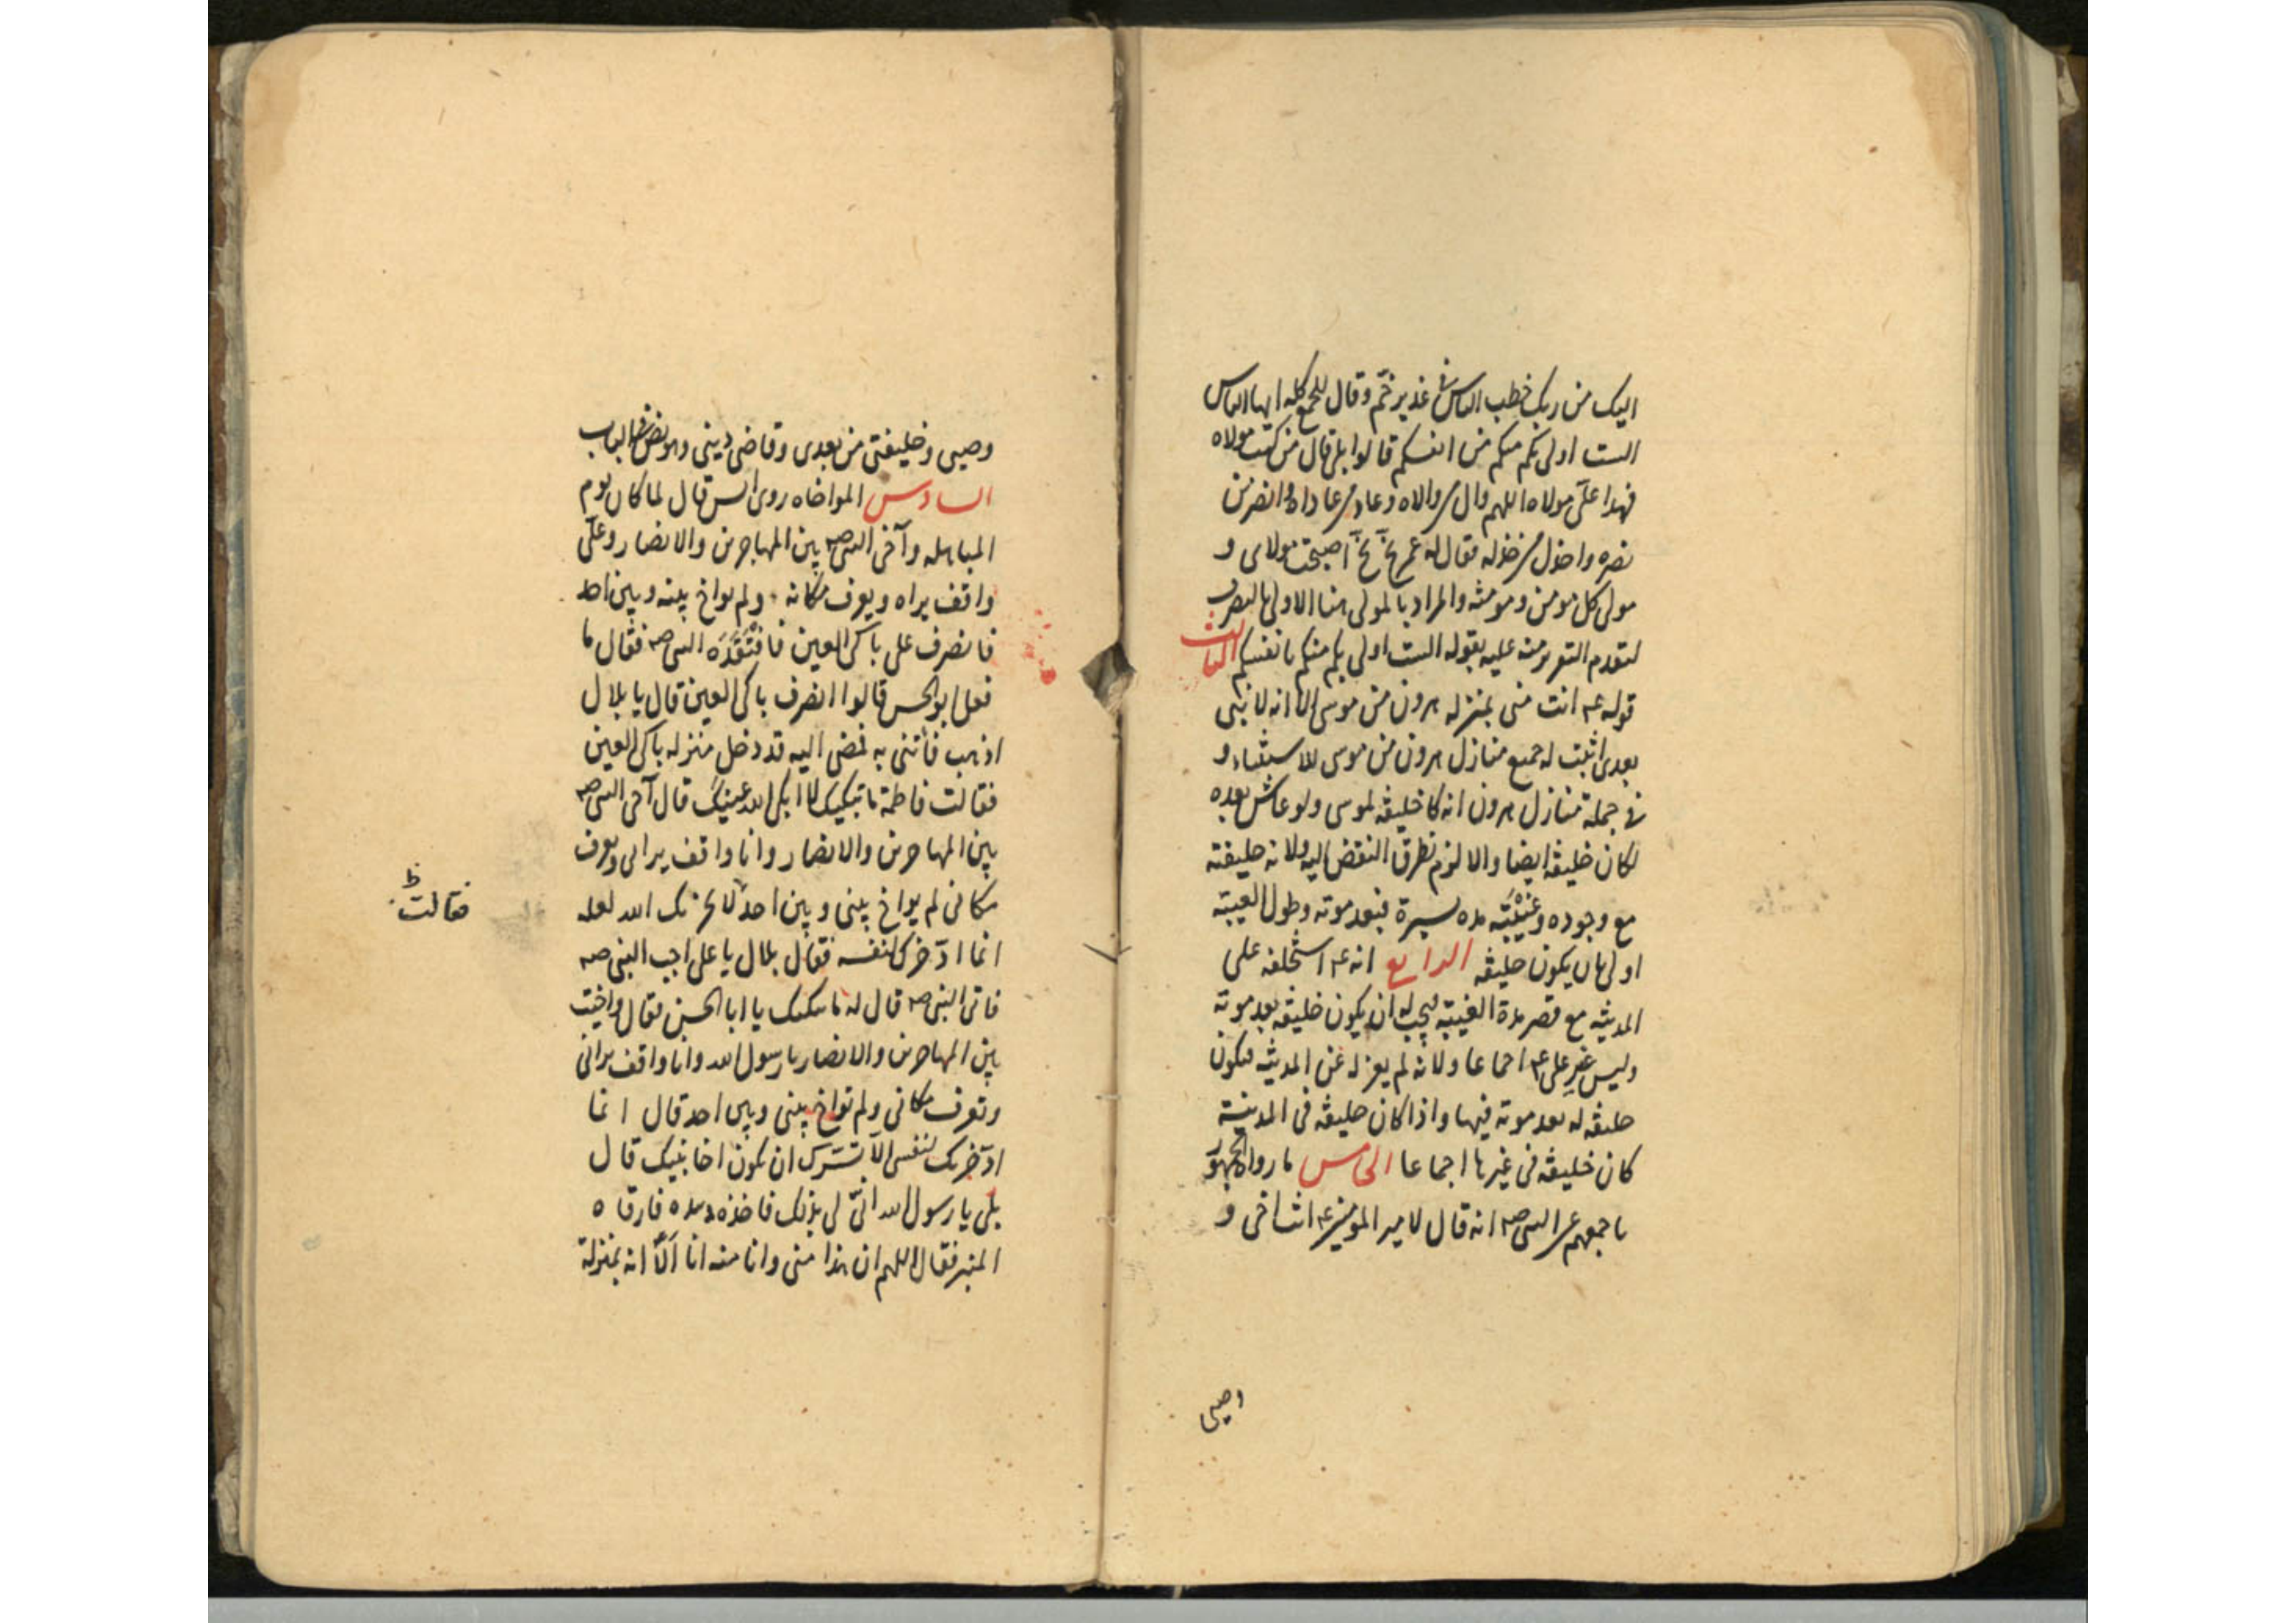 اليك من ربك خطب الناس في غدير خم وقال للجمع كله ايها الناس
الست اولى بكم منكم من انفسكم قالوا بلى قال من كنت مولاه
فهذا علي مولاه اللهم وال من والاه وعاد من عاداه وانصر من
نصره واخذل من خذله فقال له عمر بخ بخ اصبحت مولاى و
مولى كل مومن ومومنة والمراد بالمولى هنا الاولى بالتصرف
لتقدم التقرير منه عليه بقوله الست اولى بكم منكم بانفسكم الثالث
قوله ع انت منى بمنزله هرون من موسى الا انه لا نبى
بعدى اثبت له جميع منازل هرون من موسى للاستثناء و
من جملة منازل هرون انه كان خليفة لموسى ولو عاش بعده
لكان خليفة ايضا والا لزم تطرق النقض اليه ولانه خليفته
مع وجوده وغيبته مده يسيرة فبعد موته وطول الغيبة
اولى بان يكون خليفة الرابع انه ع استخلفه على
المدينة مع قصر مدة الغيبة فيجب له ان يكون خليفة بعد موته
وليس غير على ع اجماعا ولانه لم يعزله عن المدينة فيكون
خليفة له بعد موته فيها واذا كان خليفة فى المدينة
كان خليفة فى غيرها اجماعا الخامس ما رواه الجمهور
باجمعهم عن النبى ص انه قال لامير المومنين ع انت اخى و
وصيى
وصيى وخليفتى من بعدى وقاضى دينى وهو نص فى الباب
السادس المواخاه روى انس قال لما كان يوم
المباهله وآخى النبى ص بين المهاجرين والانصار وعلي
واقف يراه ويعرف مكانه ولم يواخ بينه وبين احد
فانصرف على باكى العين فافتقده النبى ص فقال ما
فعل ابو الحسن قالوا انصرف باكى العين قال يا بلال
اذهب فأتنى به فمضى اليه قد دخل منزله باكى العين
فقالت فاطمة ما يبكيك لا ابكى الله عينيك قال آخى النبى ص
بين المهاجرين والانصار وانا واقف يرانى ويعرف
مكانى لم يواخ بينى وبين احد لا يحزنك الله لعله
فقالت ظ
انما ادّخرك لنفسه فقال بلال يا على اجب النبى ص
فاتى النبى ص قال له ما يبكيك يا ابا الحسن فقال واخيت
بين المهاجرين والانصار يا رسول الله وانا واقف يرانى
وتعرف مكانى ولم تواخ بينى وبين احد قال انما
ادّخرتك لنفسى الا تسرك ان تكون اخا نبيك قال
بلى يا رسول الله انّى لى بذلك فاخذه بيده فارقاه
المنبر فقال اللهم ان هذا منى وانا منه انا الا انه بمنزلة